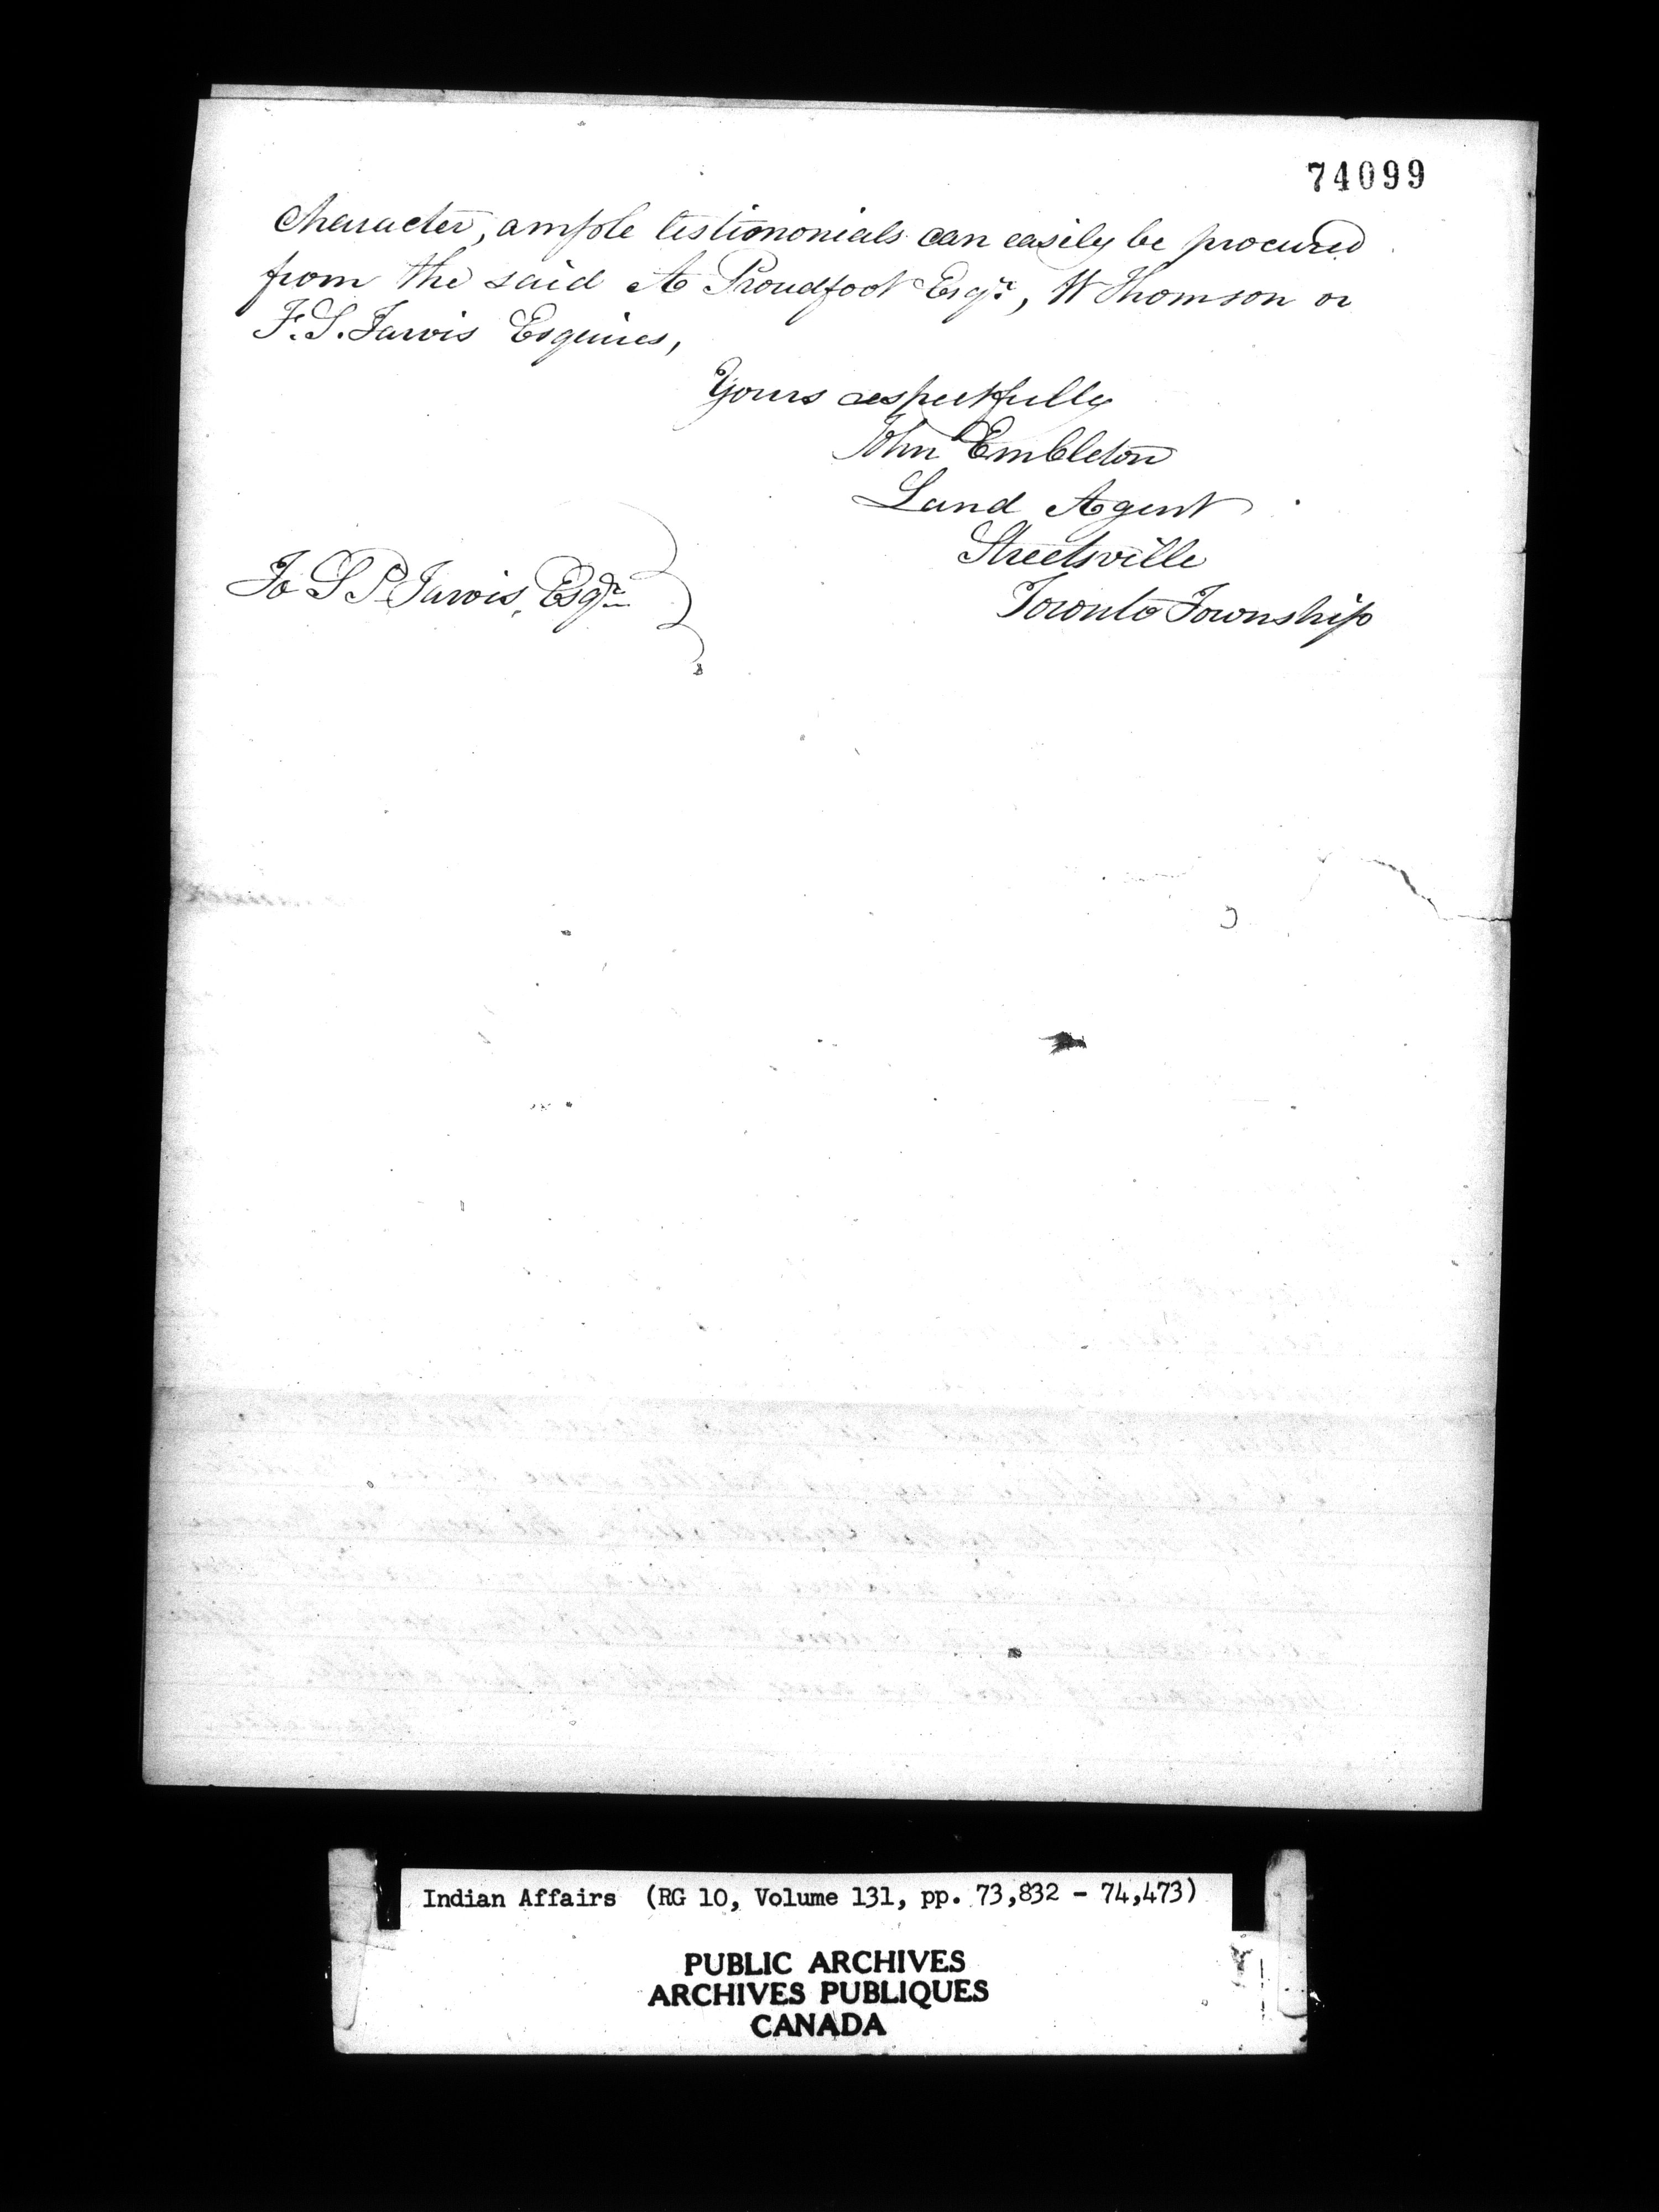 74099
Character, ample testimonials can easily be procured
from the said A Proudfoot Esqr, W Thomson or
F. S. Jarvis Esquires,
Yours respectfully
John Embleton
Land Agent
Streetsville
Toronto Township
To S P Jarvis, Esqr
Indian Affairs (RG 10, Volume 131, pp. 73,832 - 74,473)
PUBLIC ARCHIVES
ARCHIVES PUBLIQUES
CANADA